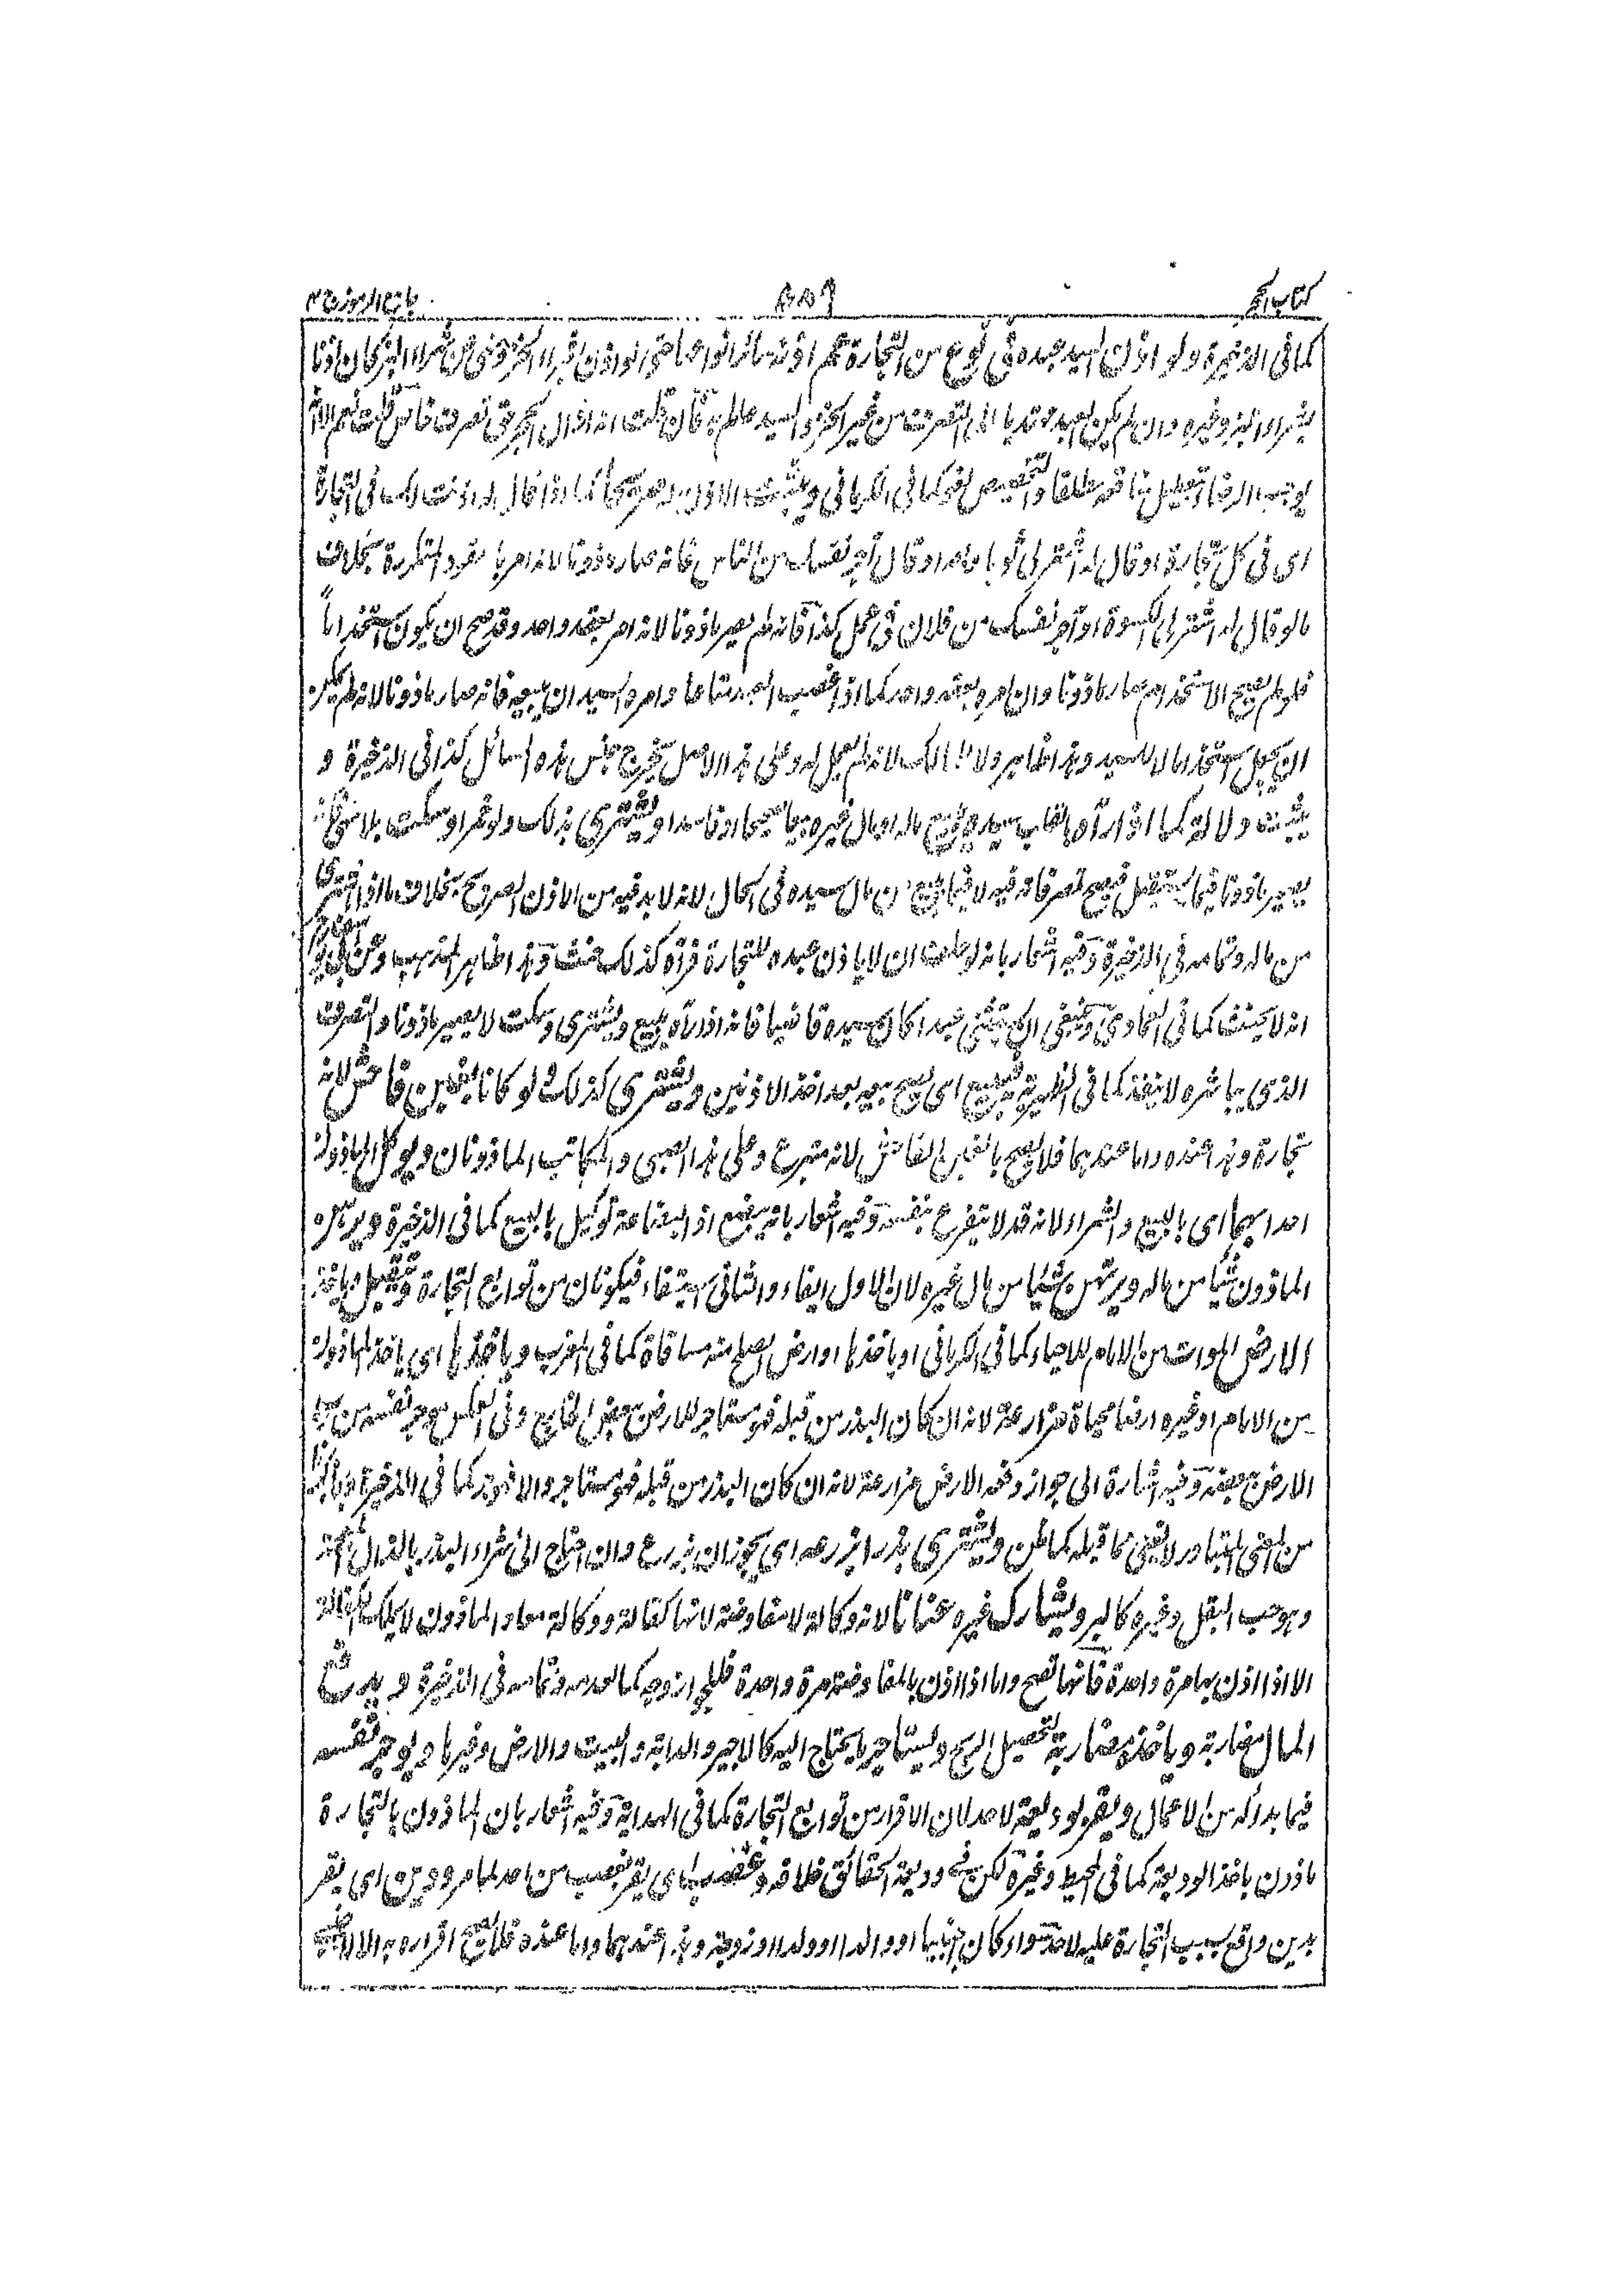 كتاب الحجر ٥٥٩ جامع الرموز ج ٢
كما فى الذخيرة ولو اذن السيد عبده فى نوع من التجارة عم اذنه سائر انواعها حتى لو اذن بشراء الخز ونهى عن شراء البز كان اذنا
بشراء البز وغيره وان لم يكن العبد مهتديا الى التصرف من غير الخز والسيد عالم به فان قلت انه اذا زال الحجر فى تصرف خاص قلت نعم
يوجب الرضا بتعطيل منافعه مطلقا والتخصيص لغو كما فى الكرمانى ويثبت الاذن صريحا كما اذا قال له اذنت لك فى التجارة
اى فى كل تجارة او قال له اشتر لى ثوبا وبعه او قال آجر نفسك من الناس فانه صار ماذونا لانه امر بالعقود المتكررة بخلاف
ما لو قال له اشتر لى الكسوة او آجر نفسك من فلان فى عمل كذا فانه لم يصير ماذونا لانه امر بعقد واحد وقد صح ان يكون استخداما
فلو لم يصح الاستخدام صار ماذونا وان امره بعقد واحد كما اذا غصب العبد متاعا وامره السيد ان يبيعه فانه صار ماذونا لانه لم يمكن
ان يجعل استخداما لا للسيد وهذا ظاهر ولا للمالك لانه لم يعمل له وعلى هذا الاصل يخرج جنس هذه المسائل كذا فى الذخيرة و
يثبت دلالة كما اذا رآه سيده يبيع ماله او مال غيره بيعا صحيحا او فاسدا ويشترى بذلك ولو خمرا وسكت بلا نهى
يصير ماذونا فيما يستقبل فيصح تصرفاته فيه لا فيما يبيع من مال سيده فى الحال لانه لا بد فيه من الاذن الصريح بخلاف ما اذا اشترى
من ماله وتمامه فى الذخيرة وفيه اشعار بانه لو حلف ان لا ياذن عبده للتجارة فرآه كذلك حنث وهذا ظاهر المذهب وعن ابى يوسف
انه لا يحنث كما فى العمادى وينبغى ان يستثنى عبدا كان سيده قاضيا فانه اذا رآه يبيع ويشترى وسكت لا يصير ماذونا والتصرف
الذى يباشره لا ينفذ كما فى الظهيرية فيبيع اى يصح بيعه بعد اخذ الاذنين ويشترى كذلك و لو كانا بغبن فاحش لانه
تجارة وهذا عنده واما عندهما فلا يصح بالغبن الفاحش لانه متبرع وعلى هذا الصبى والمكاتب الماذونان ويوكل الماذون
احدا بهما اى بالبيع والشراء لانه قد لا يتفرغ بنفسه وفيه اشعار بانه يبضع اذ البضاعة توكيل بالبيع كما فى الذخيرة ويرهن
الماذون شيئا من ماله ويرتهن شيئا من مال غيره لان الاول ايفاء والثانى استيفاء فيكونان من توابع التجارة ويتقبل وياخذ
الارض الموات من الامام للاحياء كما فى الكرمانى او ياخذها او ارض الصلح منه مساقاة كما فى المغرب وياخذها اى ياخذ الماذون
من الامام او غيره ارضا محياة مزارعة لانه ان كان البذر من قبله فهو مستاجر للارض ببعض الخارج وفى العكس موجر نفسه من
الارض ببعضه وفيه اشارة الى جواز دفعه الارض مزارعة لانه ان كان البذر من قبله فهو مستاجر والا فموجر كما فى الذخيرة
من المعنى المتبادر لا يغنى عما قبله كما ظن ويشترى بذرا يزرعه اى يجوز ان يزرع وان احتاج الى شراء البذر بالذال المعجمة
وهو حب البقل وغيره كالبر ويشارك غيره عنانا لانه وكالة لا مفاوضة لانها كفالة ووكالة معا والماذون لا يملك الكفالة
الا اذا اذن بها مرة واحدة فانها تصح واما اذا اذن بالمفاوضة مرة واحدة فليجز ازوجه كما وتمامه فى الذخيرة و يدفع
المال مضاربة وياخذه مضاربة لتحصيل الربح ويستاجر ما يحتاج اليه كالاجير والدابة والبيت والارض وغيرها ويوجر نفسه
فيما بدا له من الاعمال ويقر بوديعة لاحد لان الاقرار من توابع التجارة كما فى الهداية وفيه اشعار بان الماذون بالتجارة
ماذون باخذ الوديعة كما فى المحيط وغيره لكن فى وديعة الحقائق خلافه وغصب اى يقر بغصب من احد لما مر ودين اى يقر
بدين واقع بسبب التجارة عليه لاحد سواء كان اجنبيا او والدا او ولدا او زوجة وهذا عندهما واما عنده فلا يصح اقراره به الا